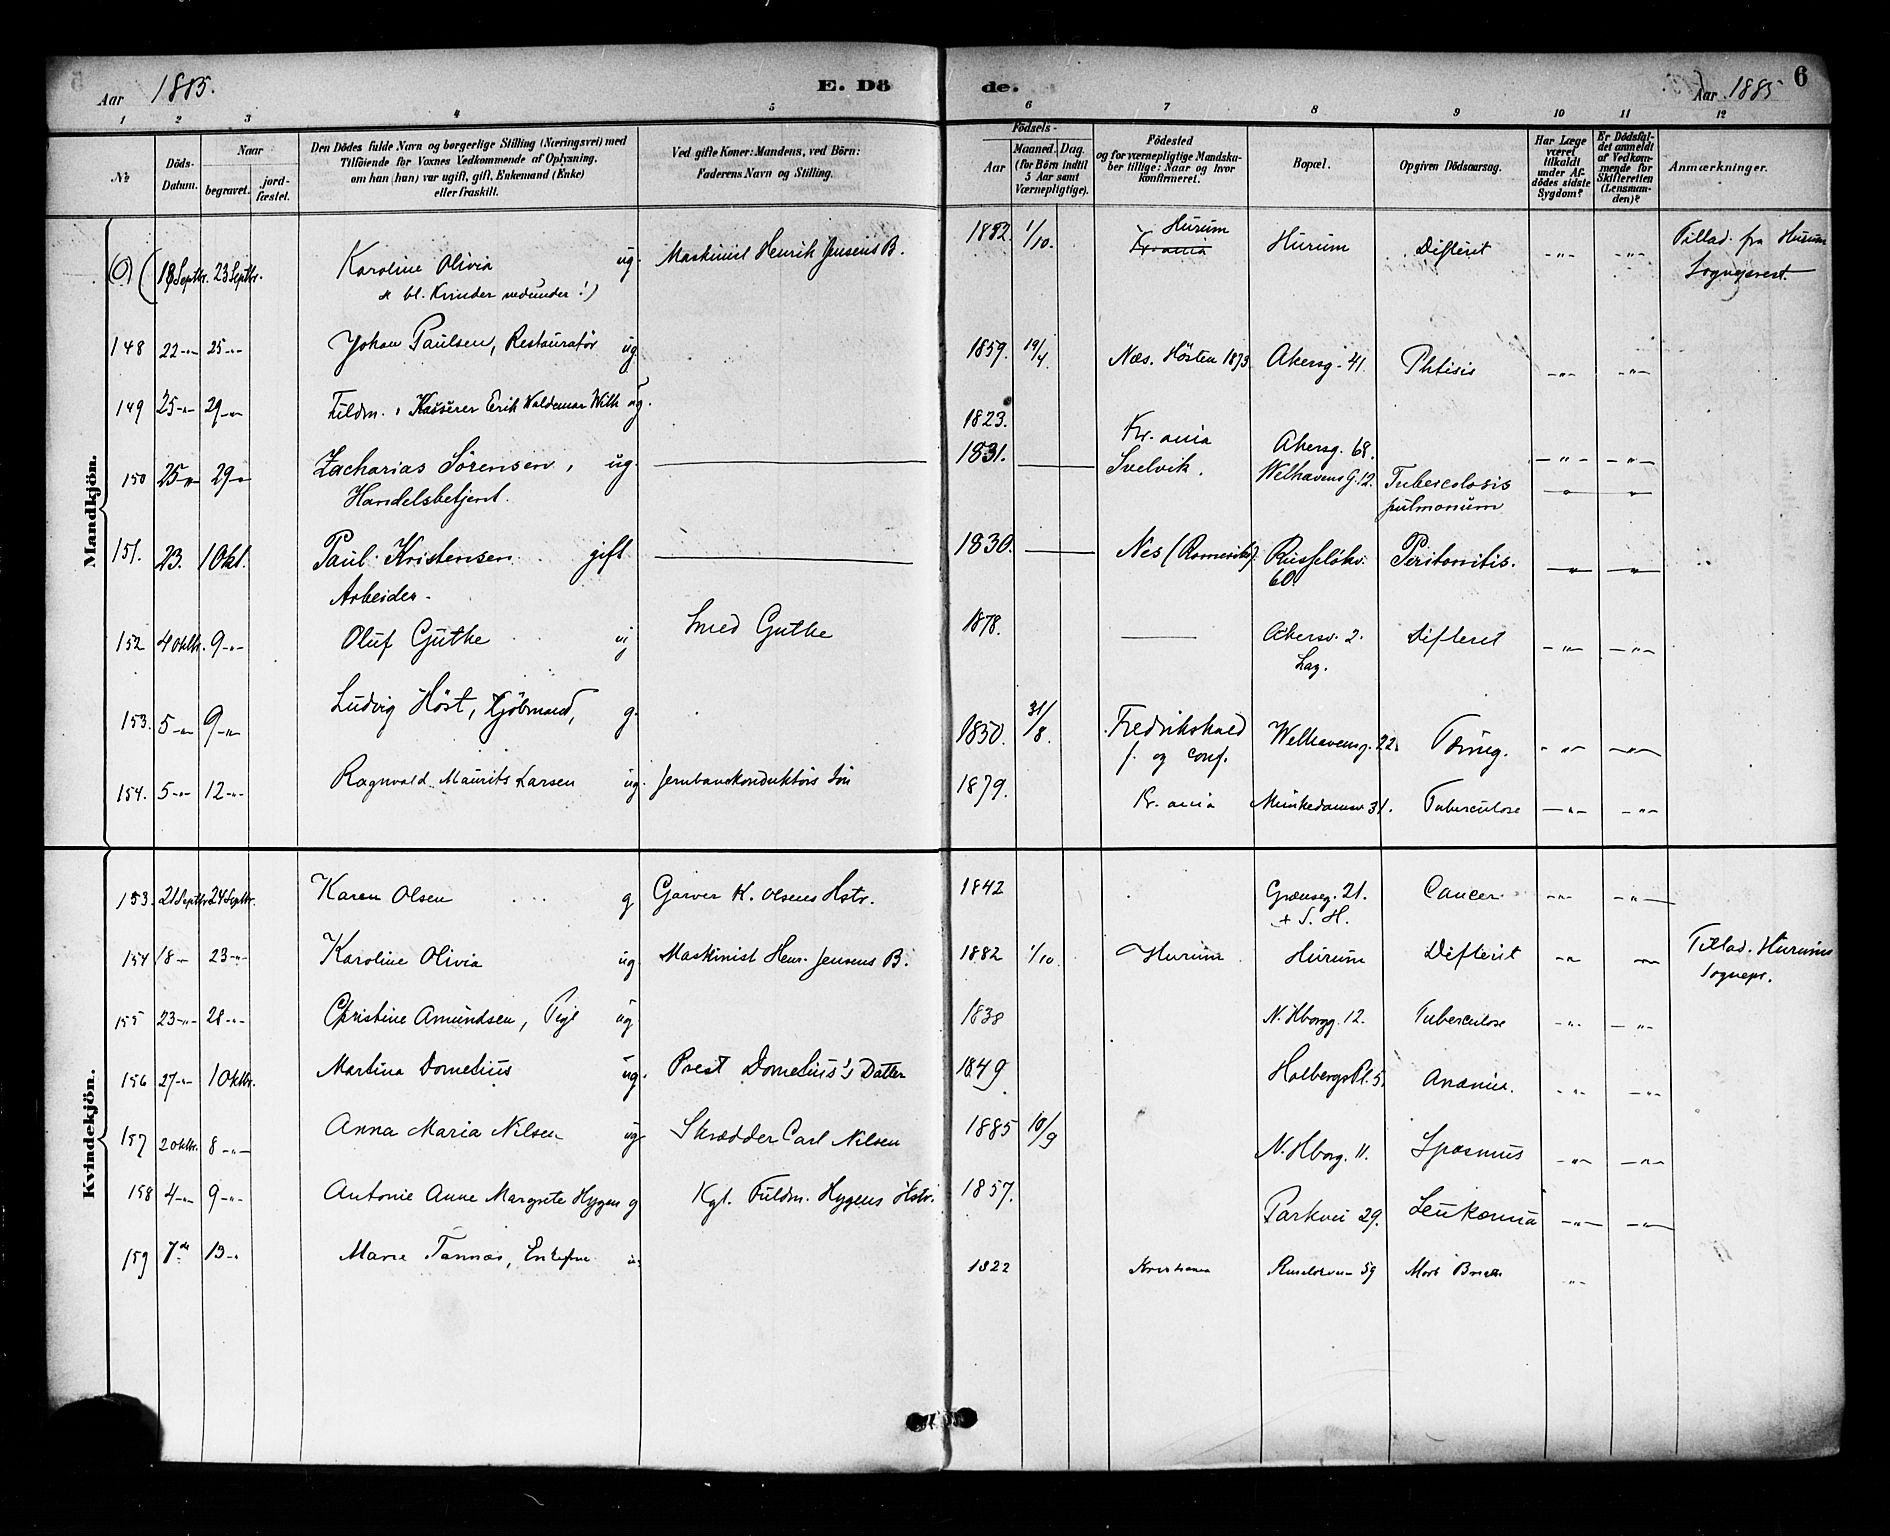 Aar 1885. E. Dö de. Aar 1885 6
1 2 3 4 5 6 7 8 9 10 11 12
No
Döds-Datum.
Naar
begravet.
jord-fæstet.
Den Dödes fulde Navn og borgerlige Stilling (Næringsvei) med
Tilföiende for Voxnes Vedkommende af Oplysning,
om han (hun) var ugift, gift, Enkemand (Enke)
eller fraskilt.
Ved gifte Koner: Mandens, ved Börn:
Faderens Navn og Stilling.
Födsels-
Aar
Maaned. Dag.
(for Börn indtil
5 Aar samt
Værnepligtige).
Födested
og for værnepligtige Mandska-
ber tillige: Naar og hvor
konfirmeret.
Bopæl.
Opgiven Dödsaarsag.
Har Læge
været
tilkaldt
under Af-
dödes sidste
Sygdom?
Er Dödsfal-
det anmeldt
af Vedkom-
mende for
Skifteretten
(Lensman-
den)?
Anmærkninger.
Mandkjön.
(0) (18 Septbr. 23 Septbr. Karoline Olivia ug. Maskinist Henrik Jensens B. 1882. 1/10. Hurum Kr.ania Hurum Difterit -"- -"- Tillad. fra Hurum
bl. Kvinder nedunder!) Sogneprest.
148 22-"- 25-"- Johan Paulsen, Restauratör ug. 1859. 19/4. Næs. Hösten 1873 Akersg. 41. Phtisis -"- -"-
149 25-"- 29-"- Fuldm. , Kasserer Erik Valdemar Wilh ug. 1823. Kr.ania Akersg. 68. -"- -"-
150 25-"- 29-"- Zacharias Sörensen, ug. 1831. Svelvik. Welhavens G. 12. Tuberculosis
Handelsbetjent. pulmonum -"- -"-
151. 23. 1 Okt. Paul Kristensen gift 1830. Nes (Romerike) Russelökv. Peritonitis. -"- -"-
Arbeider. 60
152 4 Oktbr. 9-"- Oluf Guthe Smed Guthe 1878. Akersv. 2. Difterit -"- -"-
153. 5-"- 9-"- Ludvig Höst, Kjöbmand, g. 1850. 31/8. Fredrikshald Welhavensg. 22. -"- -"-
f. og conf.
154. 5-"- 12-"- Ragnvald Maurits Larsen ug. Jernbanekonduktörs Sön 1879. Kr.ania Munkedamsv. 31. Tuberculose -"- -"-
Kvindekjön.
153. 21 Septbr. 24 Septbr. Karen Olsen g Garver K. Olsens Hstr. 1842 Grænseg. 21. Cancer -"- -"-
+ S. H.
154 18- 23-"- Karoline Olivia ug Maskinist Henr. Jensens B. 1882 1/10. Hurum Hurum Difterit -"- -"- Tillad. Hurums
Sognepr.
155 23-"- 28-"- Christine Amundsen, Pige ug 1838 N. Hborgg. 12. Tuberculose -"- -"-
156 27-"- 1 Oktbr. Martina Dometius ug. Prest Dometius's Datter 1849 Holbergs Pl. 5. Anæmie. -"- -"-
157 2 Oktbr. 8-"- Anna Maria Nilsen ug Skrædder Carl Nilsen 1885 10/9 N. Hborg. 11. Spasmus -"- -"-
158 4-"- 9-"- Antonie Anne Margrete Hygen g Kgl. Fuldm. Hygens Hstr. 1857. Parkvei 29. Leukæmia -"- -"-
159 7de 13-" 1822 Kristiania 59 -"-